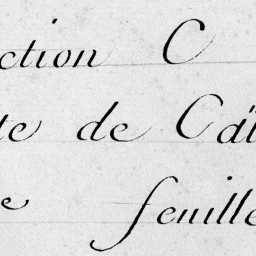 ction C
te de Cat
e feuille